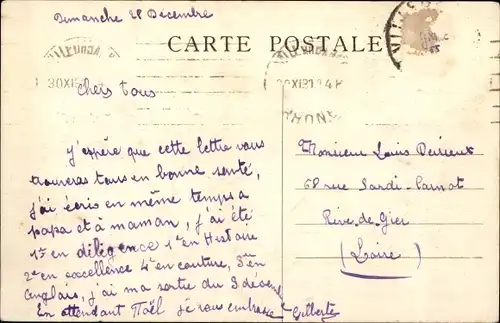 Dimanche 28 Décembre
CARTE POSTALE
Chers tous
J'espère que cette lettre vous
trouveras tous en bonne santé,
j'ai écris en même temps a
papa et à maman, j'ai été
1re en diligence 1re en Histoire
2me en excellence 4me en couture, 3me en
Anglais, j'ai ma sortie du 3
En attendant Noël je vous embrasse Gilberte
Monsieur Louis
68 rue Sardi-Carnot
Rive de Gier
(Loire)